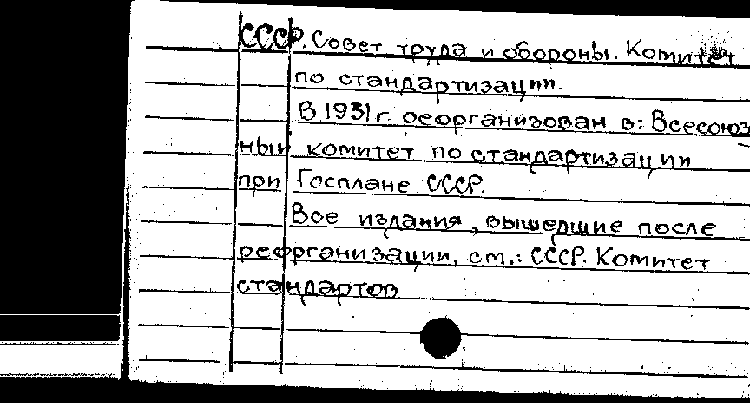 СССР. Совет труда и обороны. Комитет
по стандартизации.
В 1931 г. реорганизован в: Всесоюз
ный комитет по стандартизации
при Госплане СССР.
Все издания, вышедшие после
реорганизации, см.: СССР. Комитет
стандартов